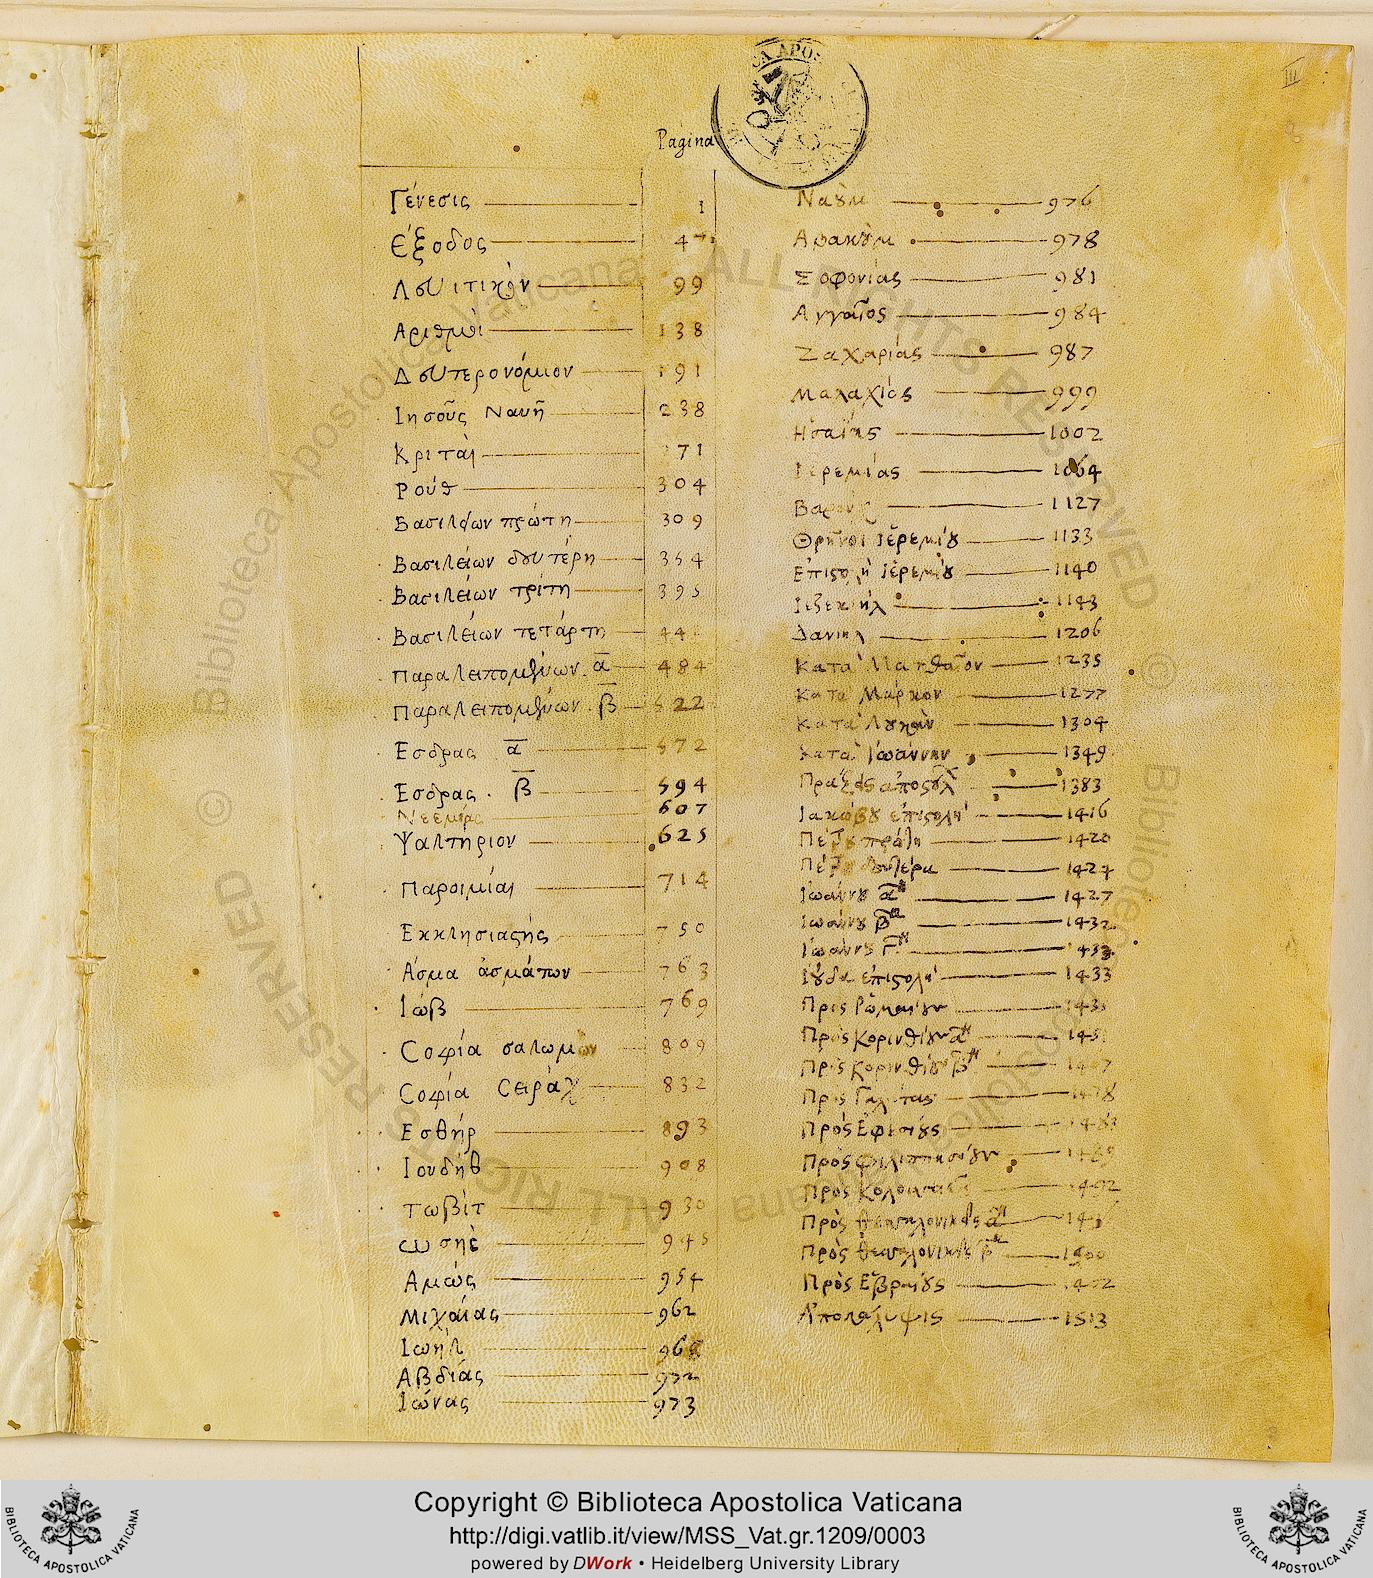 III
Pagina
Γένεσις 1
Εξοδος 47
Λευιτικὸν 99
Αριθμὸι 138
Δευτερονόμιον 191
Ιησοῦς Ναυῆ 238
Κριταὶ 71
Ρούθ 304
Βασιλείων πρώτη 309
Βασιλείων δευτέρη 354
Βασιλείων τρίτη 395
Βασιλείων τετάρτη 44
Παραλειπομένων α̅ 484
Παραλειπομένων β̅ 522
Εσδρας α̅ 572
Εσδρας β̅ 594
Νεεμίας 607
Ψαλτηριον 625
Παροιμίαι 714
Εκκλησιαϛής 750
Ἀσμα ἀσμάτων 763
Ιώβ 769
Σοφία σαλωμὼν 809
Σοφία Σειρὰχ 832
Εσθήρ 893
Ιουδήθ 908
Τωβὶτ 930
Ωσηὲ 945
Αμώς 954
Μιχαίας 962
Ιωήλ 968
Αβδίας 972
Ιώνας 973
Ναȣ̀μ 976
Αβακȣ̀μ 978
Σοφονίας 981
Αγγαῖος 984
Ζαχαρίας 987
Μαλαχίας 999
Ησαΐης 1002
Ιερεμίας 1064
Βαρούχ 1127
Θρῆνοι Ιερεμίȣ 1133
Επιϛολὴ Ιερεμίȣ 1140
Ιεζεκιήλ 1143
Δανιηλ 1206
Κατα Ματθαῖον 1235
Κατα Μάρκον 1277
Κατα Λȣκὰν 1304
Κατα Ἰωάννην 1349
Πράξεις ἀποϛόλ 1383
Ιακώβȣ ἐπιϛολη 1416
Πέτρȣ πρώτη 1420
Πέτρȣ δευτέρα 1424
Ιωάννȣ α̅ 1427
Ιωάννȣ β̅ 1432
Ιωάννȣ Γ̅ 433
Ιȣ́δα ἐπιϛολη 1433
Προς Ρωμαίȣς 1435
Πρὸς Κορινθίȣς α̅ 145
Πρὸς Κορινθίȣς β̅ 1467
Προς Γαλάτας 1478
Πρὸς Εφεσίȣς 1483
Πρὸς φιλιππησίȣς 1489
Πρὸς Κολοσσαεῖς 1492
Πρὸς θεσσαλονικεῖς α̅
Πρὸς θεσσαλονικεῖς β̅ 1500
Πρὸς Εβραίȣς
Ἀποκάλυψις 1513
Copyright © Biblioteca Apostolica Vaticana
http://digi.vatlib.it/view/MSS_Vat.gr.1209/0003
powered by DWork • Heidelberg University Library
BIBLIOTECA APOSTOLICA VATICANA
BIBLIOTECA APOSTOLICA VATICANA